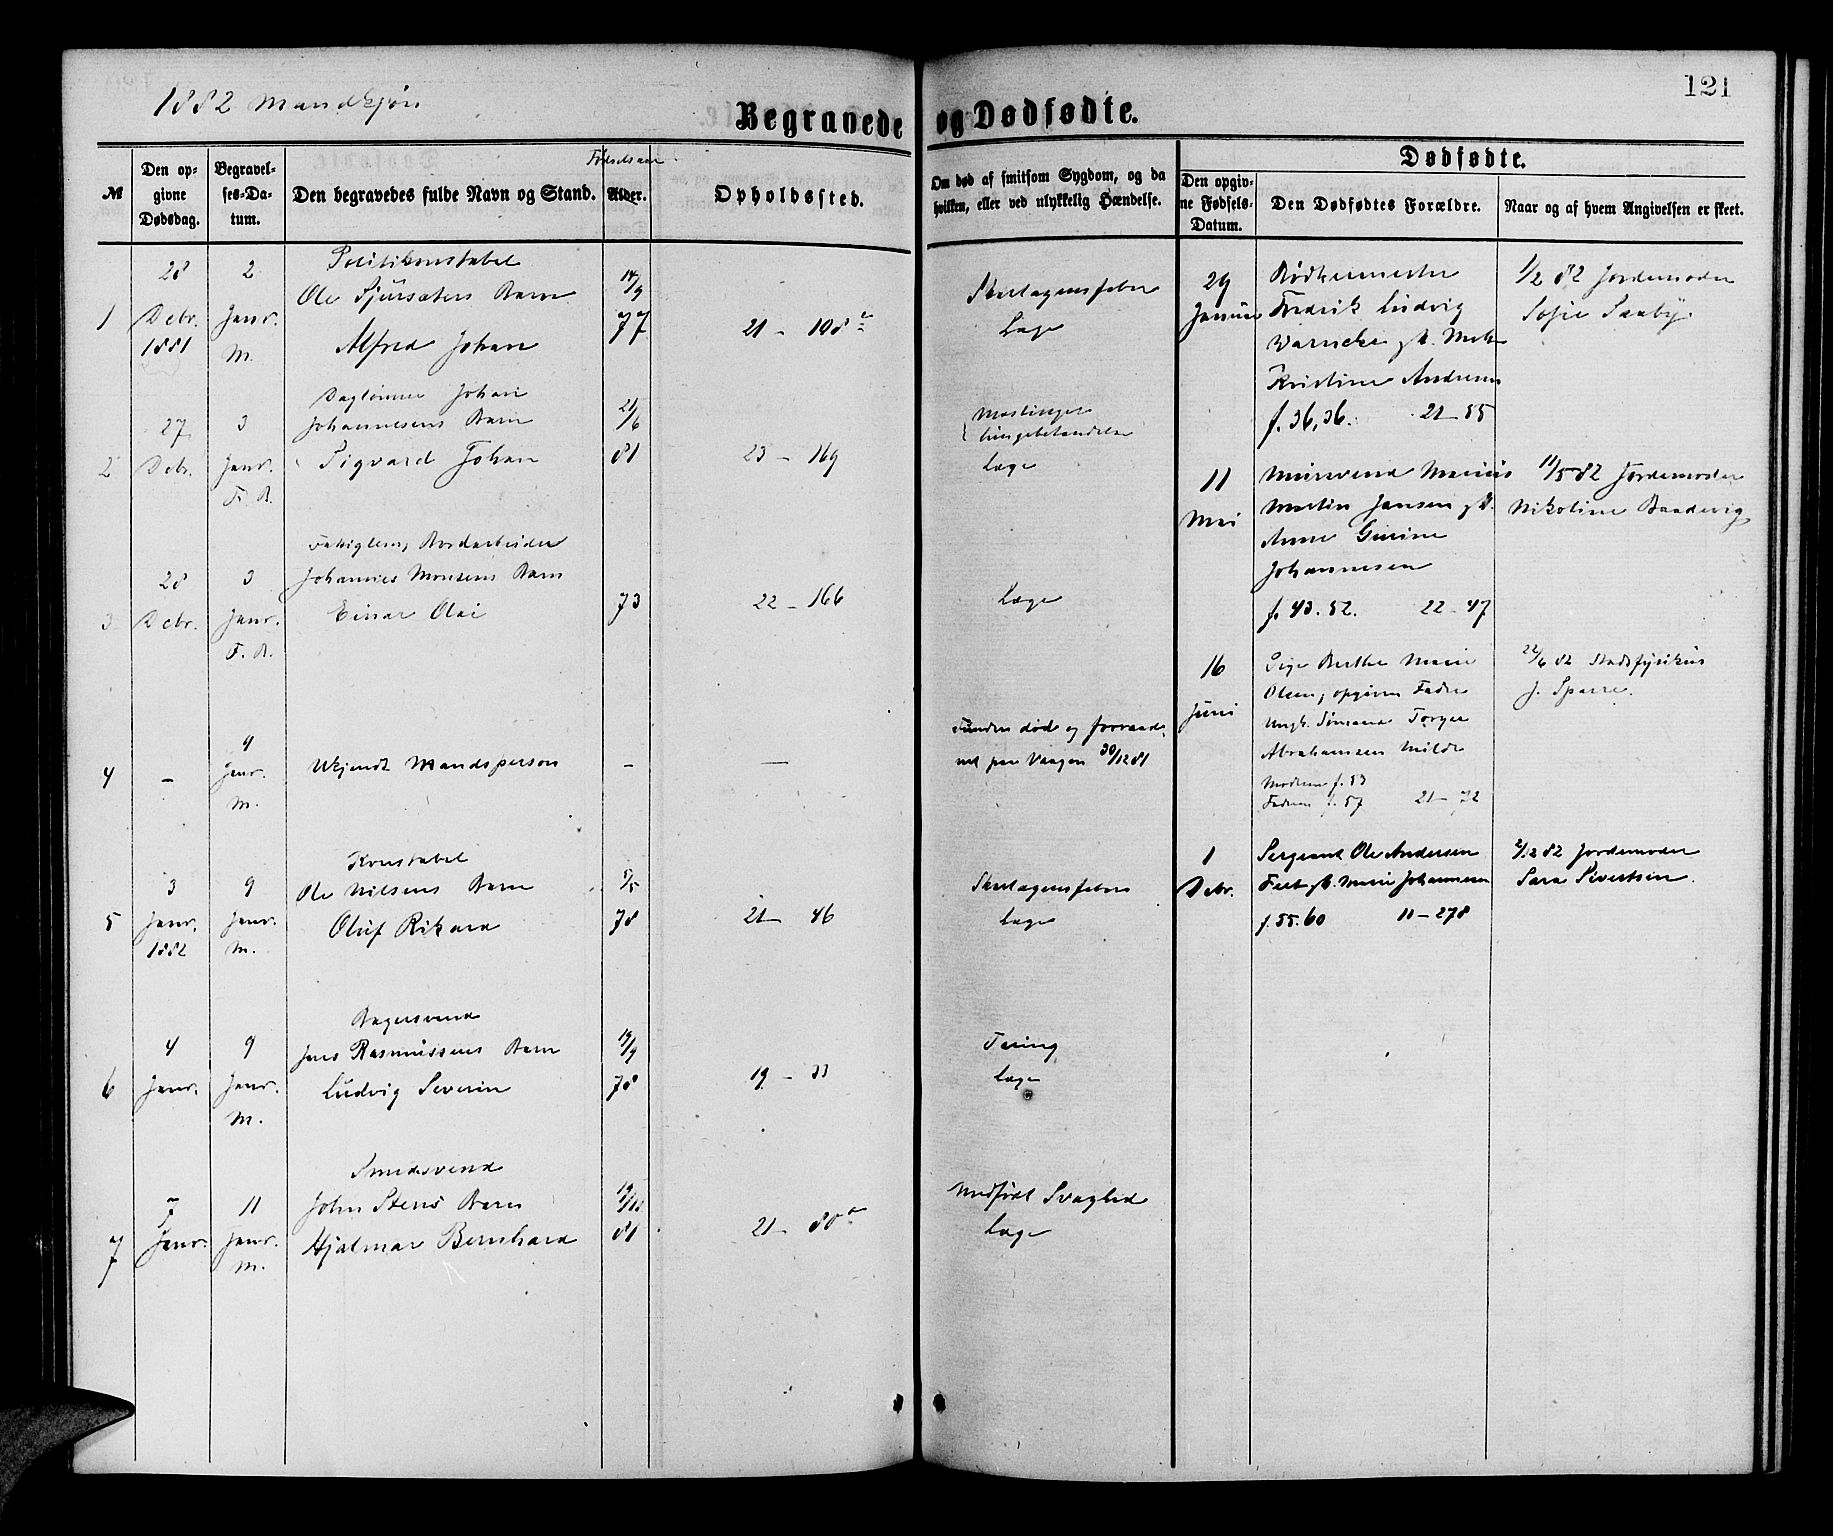 121
1882 Mandkjøn
Begravede og Dødfødte.
№
Den op-
givne
Dødsdag.
Begravel-
ses-Da-
tum.
Den begravedes fulde Navn og Stand.
Fødselsaar
Alder.
Opholdssted.
Om død af smitsom Sygdom, og da
hvilken, eller ved ulykkelig Hændelse.
Dødfødte.
Den opgiv-
ne Fødsels-
Datum.
Den Dødfødtes Forældre.
Naar og af hvem Angivelsen er skeet.
1
28
Debr.
1881
2
Janr.
M.
Politikonstabel
Ole Sjursæters Barn
Alfred Johan
14/9
77
21 - 108
Skarlagensfeber
Læge
2
27
Debr.
3
Janr.
F. A.
Daglønner Johan
Johannesens Barn
Sigvard Johan
21/6
81
23 - 169
Mæslinger
Læge
3
28
Debr.
3
Janr.
F. A.
Fattiglem, Jordarbeider
Johannes Monsens Barn
Einar Olai
73
22 - 166
Læge
4
-
4
Janr.
M.
Ukjendt Mandsperson
-
-
Funden død og forraad-
net paa Vaagen 30/12 81
5
3
Janr.
1882
9
Janr.
M.
Konstabel
Ole Nilsens Barn
Oluf Rikard
5/5
78
21 - 46
Skarlagensfeber
Læge
6
4
Janr.
9
Janr.
M.
Bagersvend
Jens Rasmussens Barn
Ludvig Severin
19/9
78
19 - 33
Tæring
Læge
7
7
Janr.
11
Janr.
M.
Smedsvend
John Stens Barn
Hjalmar Bernhard
19/12
81
21 - 80
Medfødt Svaghed
Læge
29
Januar
Bødkermester
Fredrik Ludvig
Warncke gk. Mek
Kristine Andrea
f. 36, 36. 21 - 55
1/2 82 Jordemoder
Sofie Saaby.
11
Mai
Murersvend Marius
Martin Jansen gk.
Anne Gurine
Johannesen
f. 43. 52. 22 - 47
11/5 82 Jordemoder
Nikoline Baadevig
16
Juni
Pige Berthe Marie
Olsen, opgiven Fader
Ungk. Tømmerm. Torger
Abrahamsen Milde
Modern f. 53
Fadern f. 57 21 - 72
22/6 82 Stadsfysikus
J. Sparre.
1
Debr.
Sergeant Ole Andersen
gk. Marie Johannesen
f. 55. 60 11 - 278
2/12 82 Jordemoder
Sara Sivertsen.